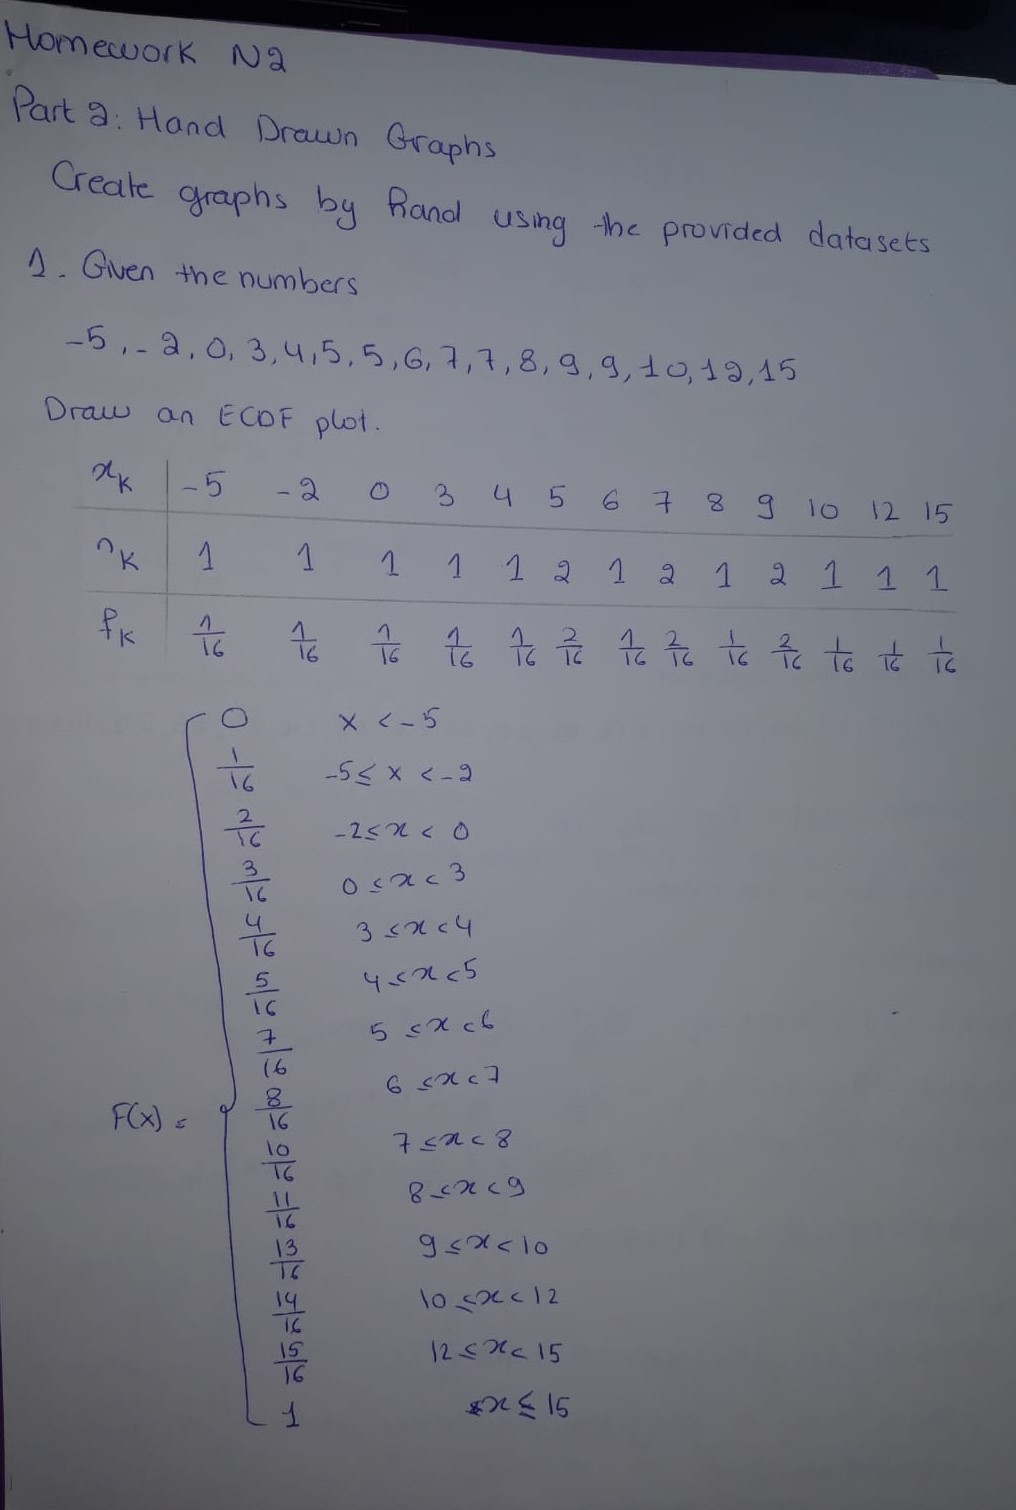 Homework N2
Part 2: Hand Drawn Graphs
Create graphs by hand using the provided datasets
1. Given the numbers
-5, -2, 0, 3, 4, 5, 5, 6, 7, 7, 8, 9, 9, 10, 12, 15
Draw an ECDF plot.
xK | -5 -2 0 3 4 5 6 7 8 9 10 12 15
nK | 1 1 1 1 1 2 1 2 1 2 1 1 1
fK | 1/16 1/16 1/16 1/16 1/16 2/16 1/16 2/16 1/16 2/16 1/16 1/16 1/16
0 x < -5
1/16 -5 ≤ x < -2
2/16 -2 ≤ x < 0
3/16 0 ≤ x < 3
4/16 3 ≤ x < 4
5/16 4 ≤ x < 5
7/16 5 ≤ x < 6
8/16 6 ≤ x < 7
F(x) =
10/16 7 ≤ x < 8
11/16 8 ≤ x < 9
13/16 9 ≤ x < 10
14/16 10 ≤ x < 12
15/16 12 ≤ x < 15
1 x 15